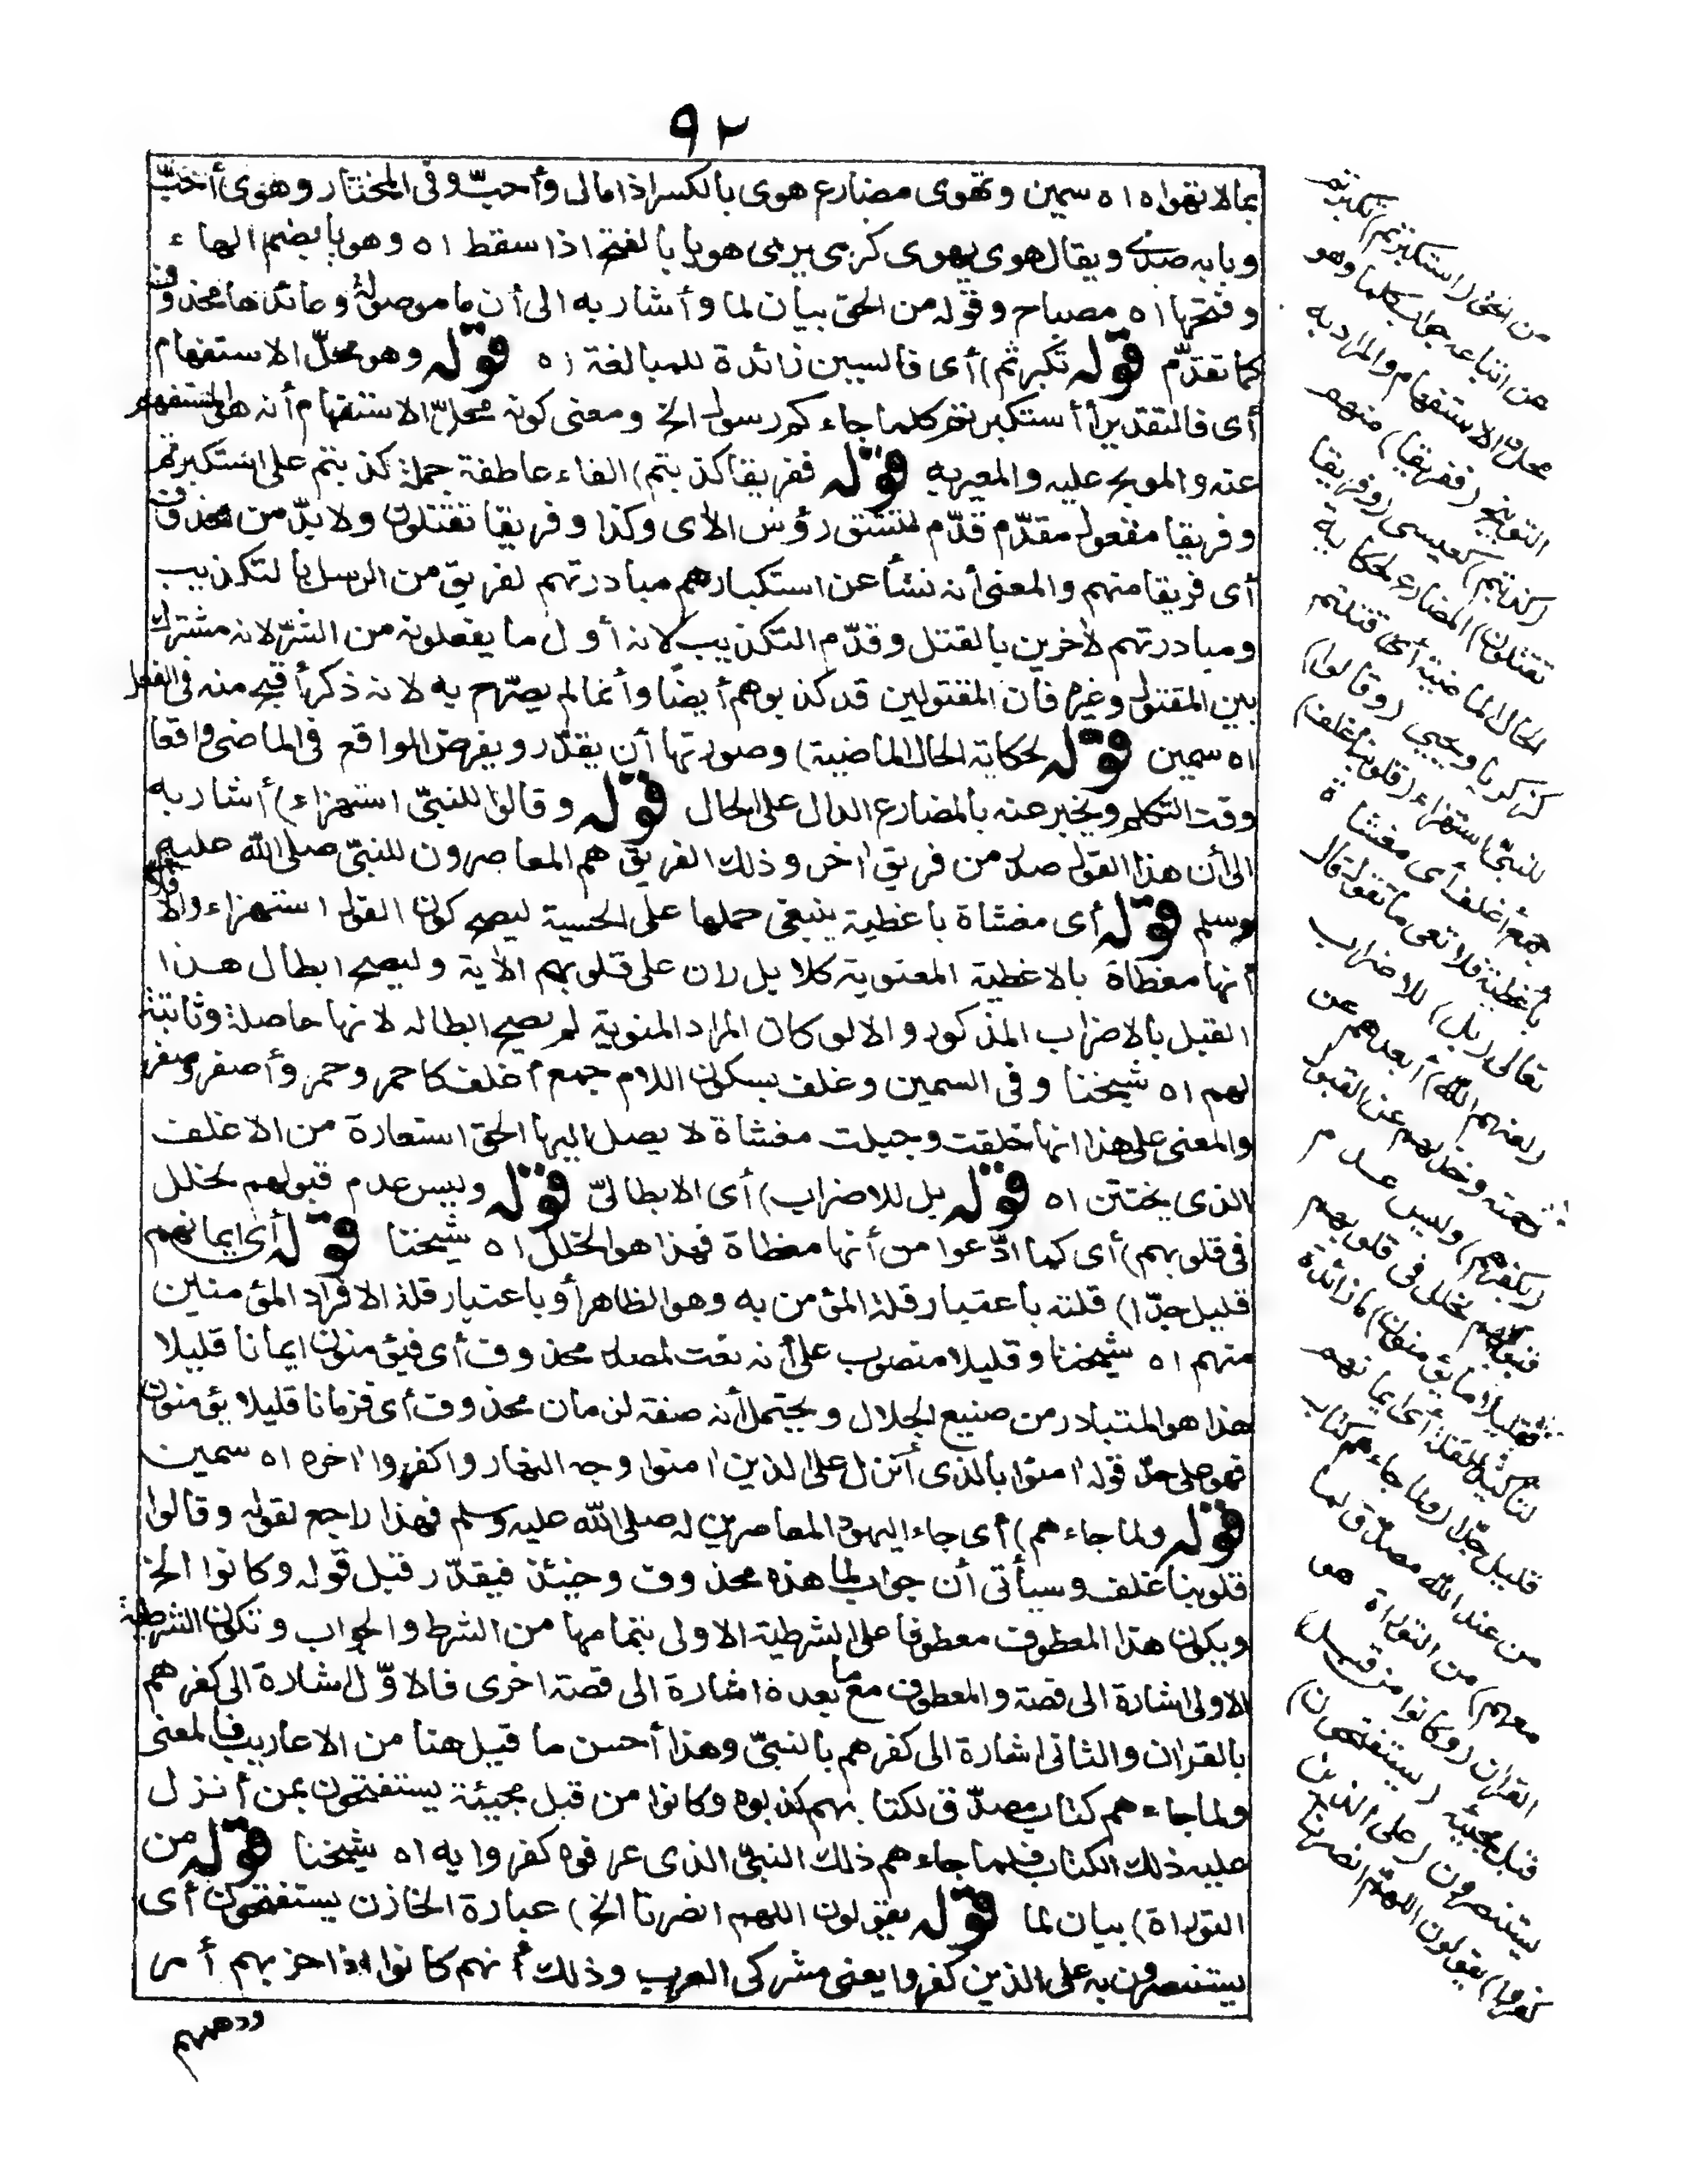 ٩٢
بمالا تهواه اه سمين وتهوى مضارع هوى بالكسر اذا مال وأحبّ وفى المختار وهوى أحبّ
وبابه صدى ويقال هوى يهوى كرمى يرمى هويا بالفتح اذا سقط اه وهويا بضم الهاء
وفتحها اه مصباح وقوله من الحق بيان لما وأشار به الى أن ما موصولة وعائدها محذوف
كما تقدّم قوله تكبرتم) أى فالسين زائدة للمبالغة اه قوله وهو محلّ الاستفهام
أى فالتقدير أأستكبرتم كلما جاءكم رسول الخ ومعنى كونه محلّ الاستفهام أنه هو المستفهم
عنه والموبخ عليه والمعير به قوله ففريقا كذبتم) الفاء عاطفة جملة كذبتم على استكبرتم
وفريقا مفعول مقدّم قدّم لتتسق رؤس الآى وكذا وفريقا تقتلون ولا بدّ من محذوف
أى فريقا منهم والمعنى أنه نشأ عن استكبارهم مبادرتهم لفريق من الرسل بالتكذيب
ومبادرتهم لآخرين بالقتل وقدّم التكذيب لانه أول ما يفعلونه من الشرّ لانه مشترك
بين المقتول وغيره فان المقتولين قد كذبوهم أيضا وأنما لم يصرّح به لانه ذكر أقبح منه فى الفعل
اه سمين قوله لحكاية الحال الماضية) وصورتها أن يقدّر ويفرض الواقع فى الماضى واقعا
وقت التكلم ويخبر عنه بالمضارع الدال على الحال قوله وقالوا للنبىّ استهزاء) أشار به
الى أن هذا القول صدر من فريق آخر وذلك الفريق هم المعاصرون للنبىّ صلى الله عليه
وسلم قوله أى مغشاة باغطية ينبغى حملها على الحسية ليصح كون القول استهزاء والا فلا
أنها مغطاة بالاغطية المعنوية كلا بل ران على قلوبهم الآية وليصح ابطال هذا
القيل بالاضراب المذكور والا لو كان المراد المنوية لم يصح ابطاله لانها حاصلة وثابتة
لهم اه شيخنا وفى السمين وغلف بسكون اللام جمع أغلف كاحمر وحمر وأصفر وصفر
والمعنى على هذا انها خلقت وجبلت مغشاة لا يصل اليها الحق استعارة من الاغلف
الذى يختتن اه قوله بل للاضراب) أى الابطالىّ قوله وليس عدم قبولهم لخلل
فى قلوبهم) أى كما ادّعوا من أنها مغطاة فهذا هو الخلل اه شيخنا قوله أى ايمانهم
قليل جدّا) قلته باعتبار قلة المؤمن به وهو الظاهر أو باعتبار قلة الافراد المؤمنين
منهم اه شيخنا وقليلا منصوب على أنه نعت لمصدر محذوف أى فيؤمنون ايمانا قليلا
هذا هو المتبادر من صنيع الجلال ويحتمل أنه صفة لزمان محذوف أى فزمانا قليلا يؤمنون
فهو على حدّ قوله آمنوا بالذى أنزل على الذين آمنوا وجه النهار واكفروا آخره اه سمين
قوله ولما جاءهم) أى جاء اليهود المعاصرين له صلى الله عليه وسلم فهذا راجع لقوله وقالوا
قلوبنا غلف وسيأتى أن جواب لما هذه محذوف وحينئذ فيقدّر قبل قوله وكانوا الخ
ويكون هذا المعطوف معطوفا على الشرطية الاولى بتمامها من الشرط والجواب وتكون الشرطية
الاولى اشارة الى قصة والمعطوف مع ما بعده اشارة الى قصة اخرى فالاوّل اشارة الى كفرهم
بالقرآن والثانى اشارة الى كفرهم بالنبىّ وهذا أحسن ما قيل هنا من الاعاريب فالمعنى
ولما جاءهم كتاب مصدّق لكتابهم كذبوه وكانوا من قبل مجيئة يستفتحون بمن أنزل
عليه ذلك الكتاب فلما جاءهم ذلك النبىّ الذى عرفوه كفروا به اه شيخنا قوله من
التوراة) بيان لما قوله يقولون اللهم انصرنا الخ) عبارة الخازن يستفتحون أى
يستنصرون به على الذين كفروا يعنى مشركى العرب وذلك أنهم كانوا اذا حزبهم أمر
ودهمهم
من الحق (استكبرتم) تكبرتم
عن اتباعه جواب كلما وهو
محل الاستفهام والمراد به
التوبيخ (ففريقا) منهم
(كذبتم) كعيسى (وفريقا
تقتلون) المضارع لحكاية
الحال الماضية أى قتلتم
كزكريا ويحيى (وقالوا)
للنبىّ استهزاء (قلوبنا غلف)
جمع أغلف أى مغشاة
بأغطية فلا تعى ما تقول قال
تعالى (بل) للاضراب
(لعنهم الله) أبعدهم عن
رحمته وخذلهم عن القبول
(بكفرهم) وليس عدم
قبولهم لخلل فى قلوبهم
(فقليلا ما يؤمنون) ما زائدة
لتأكيد القلة أى ايمانهم
قليل جدّا (ولما جاءهم كتاب
من عند الله مصدّق لما
معهم) من التوراة هو
القرآن (وكانوا من قبل)
قبل مجيئه (يستفتحون)
يستنصرون (على الذين
كفروا) يقولون اللهمّ انصرنا